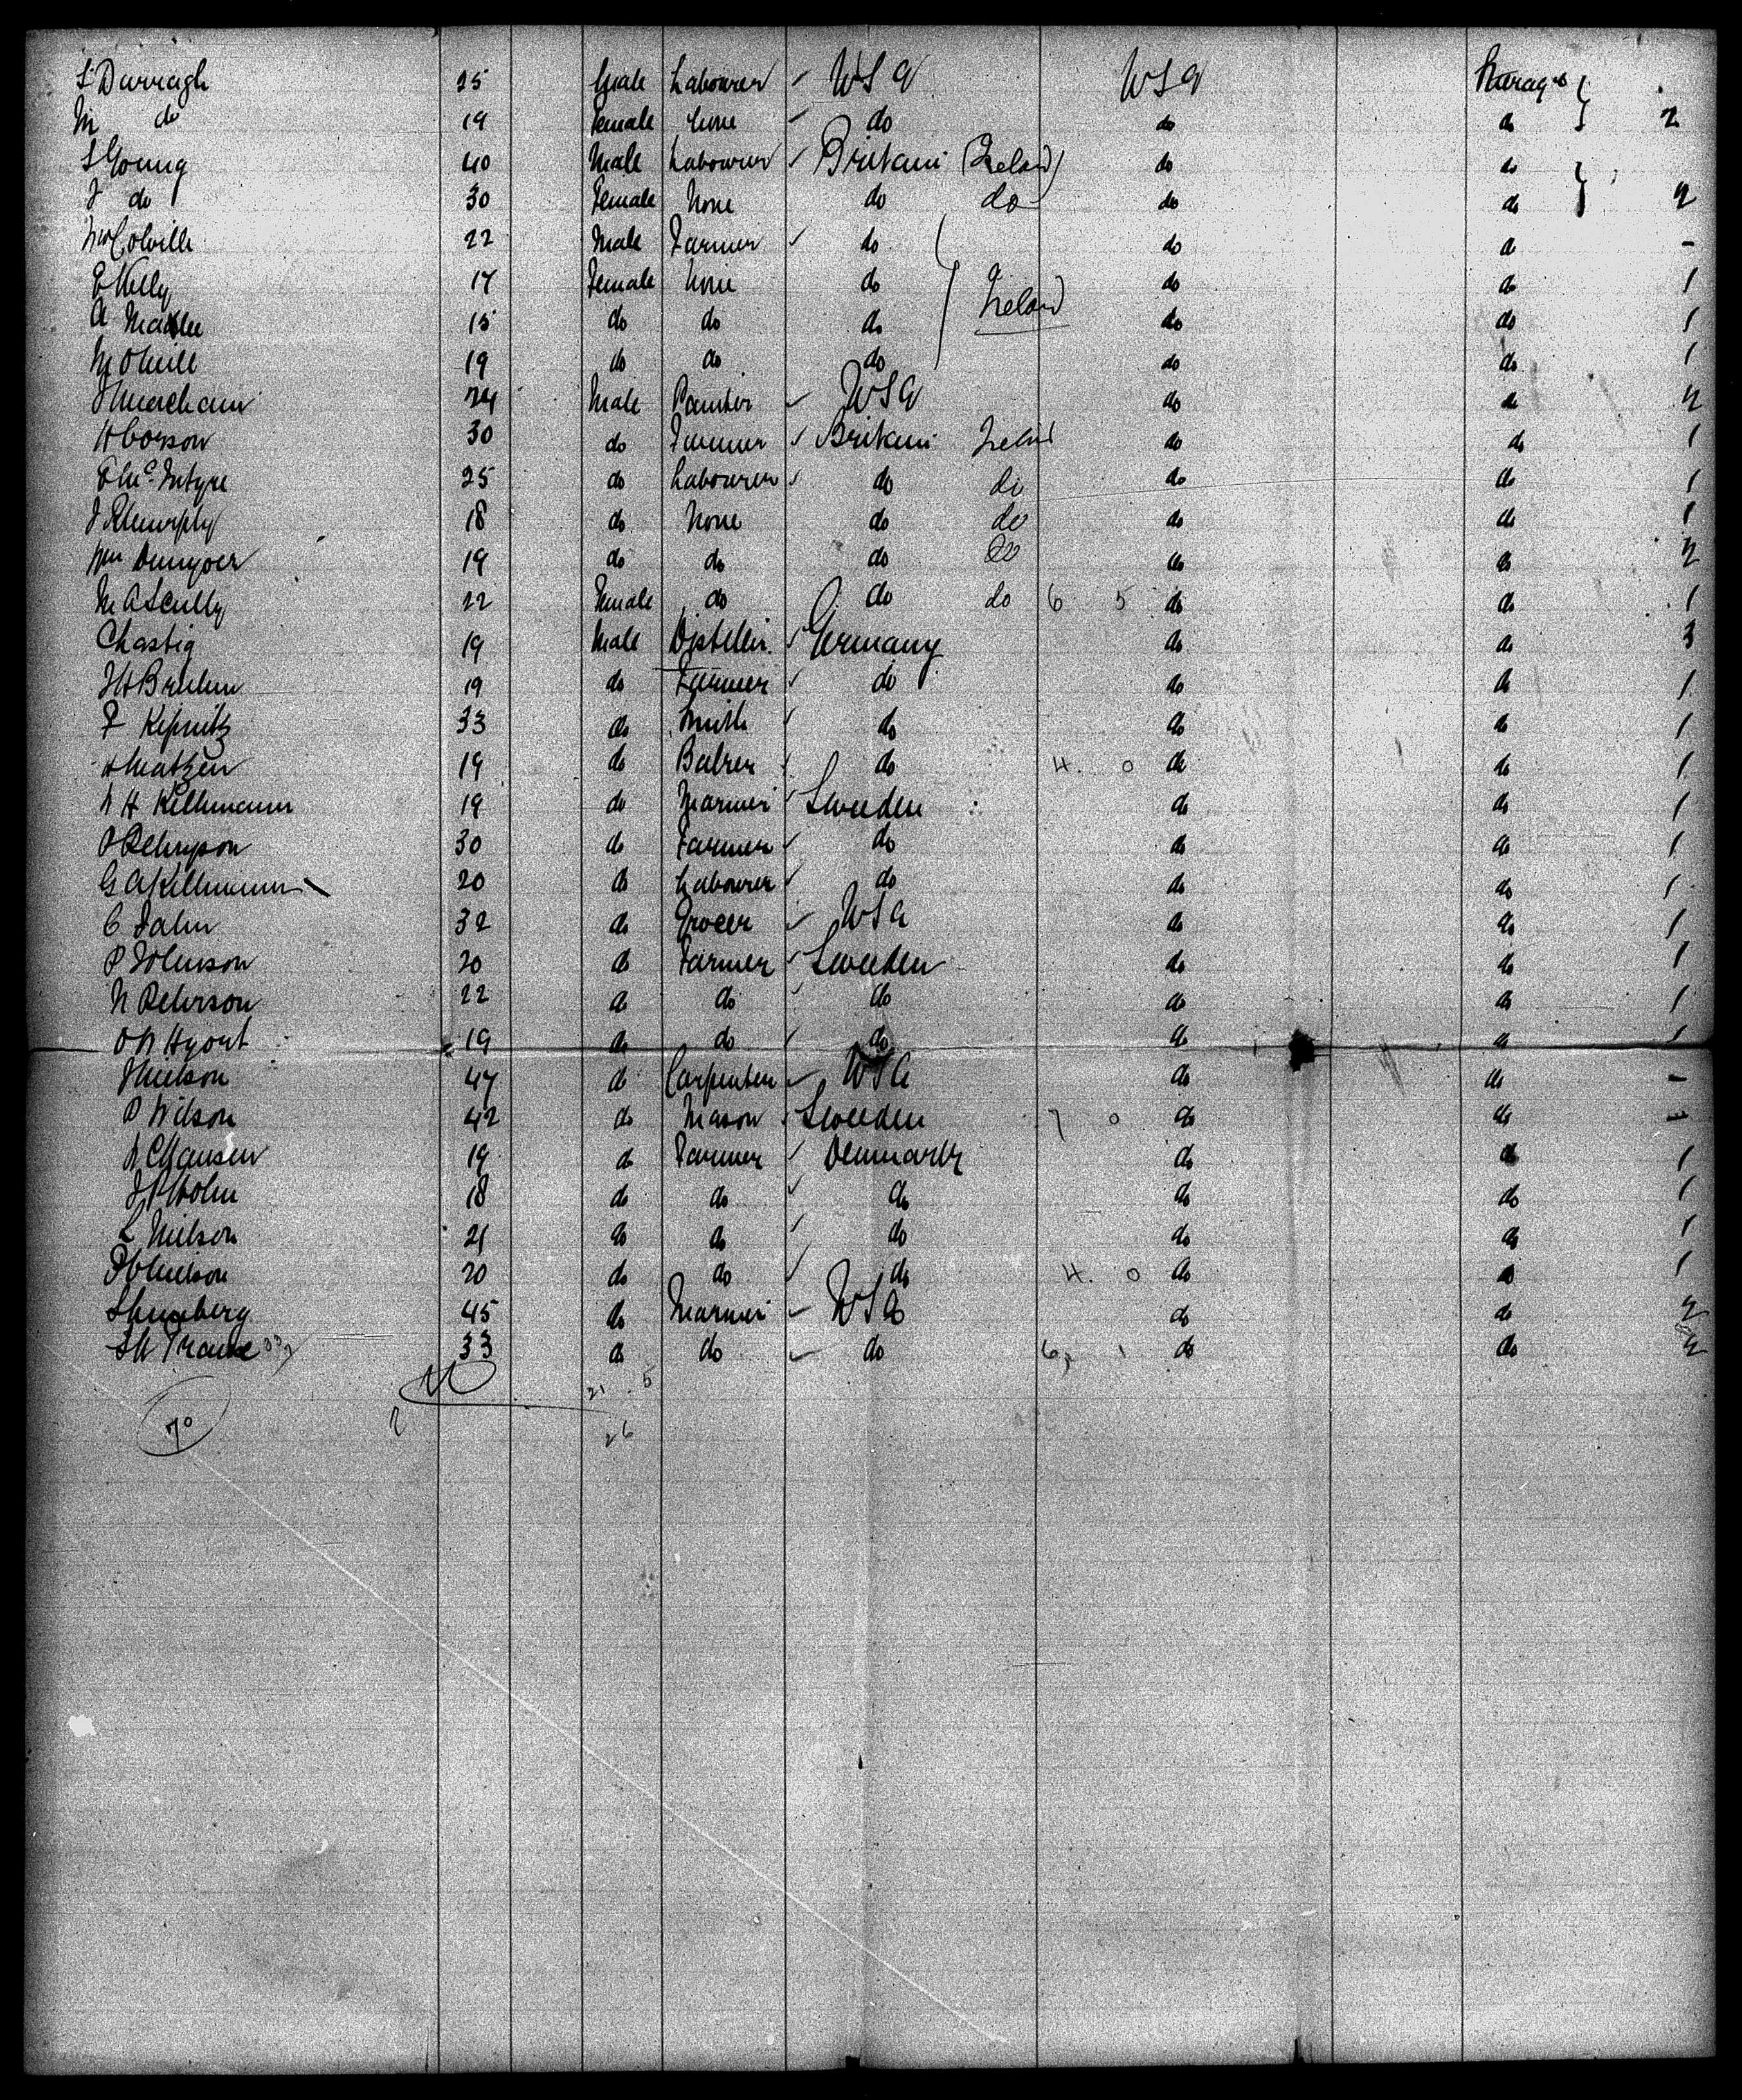 S Darragh 25 Male Labourer USA USA Steerage 2
M do 19 Female None do do do
S Young 40 Male Labourer Britain (Ireland) do do 2
J do 30 Female None do do do do
Wm Colville 22 Male Farmer do do do -
E Kelly 17 Female None do do do 1
A 15 do do do Ireland do do 1
M ONeill 19 do do do do do 1
24 Male Painter USA do do 2
H Corson 30 do Farmer Britain Ireland do do 1
F McIntyre 25 do Labourer do do do do 1
J R Murphy 18 do None do do do do 1
Wm 19 do do do do do do 2
M A Scully 22 Female do do do 6 5 do do 1
Chastig 19 Male Distiller Germany do do 3
J H Bruhn 19 do Farmer do do do 1
F Kipnitz 33 do Smith do do do 1
H Matzen 19 do Baker do 4 0 do do 1
N H Kellmann 19 do Mariner Sweeden do do 1
30 do Farmer do do do 1
G A Kellmann 20 do Labourer do do do 1
C Jahn 32 do Grocer USA do do 1
P Johnson 20 do Farmer Sweeden do do 1
N Peterson 22 do do do do do 1
O N Hyort 19 do do do do do 1
J Nielson 47 do Carpenter USA do do -
P Nilson 42 do Mason Sweeden 7 0 do do
N C Hansen 19 do Farmer Denmark do do 1
J P Holm 18 do do do do do 1
L Nielson 21 do do do do do 1
P C Nielson 20 do do do 4 0 do do 1
45 do Mariner USA do do 2
33 do do do 6 1 do do
21 5
26